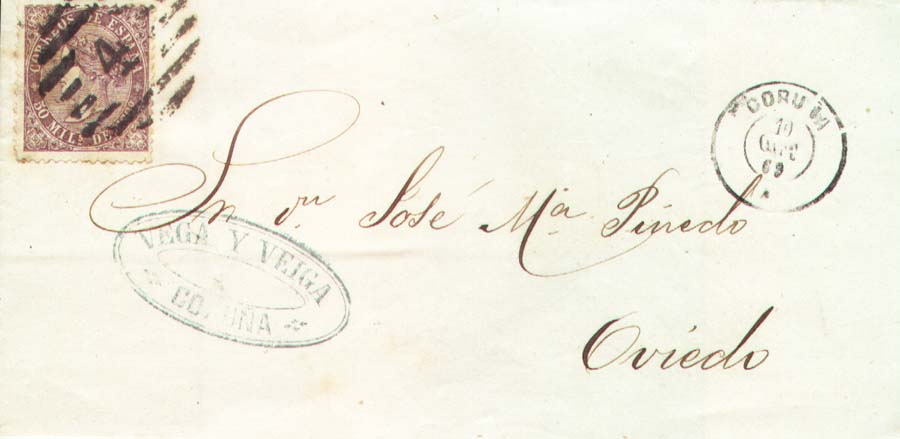 CORREOS DE ESPAÑA
4
50 MILS DE
CORUÑA
10
69
Sr. Dn. José Ma. Pinedo
VEGA Y VEIGA
CORUÑA
Oviedo